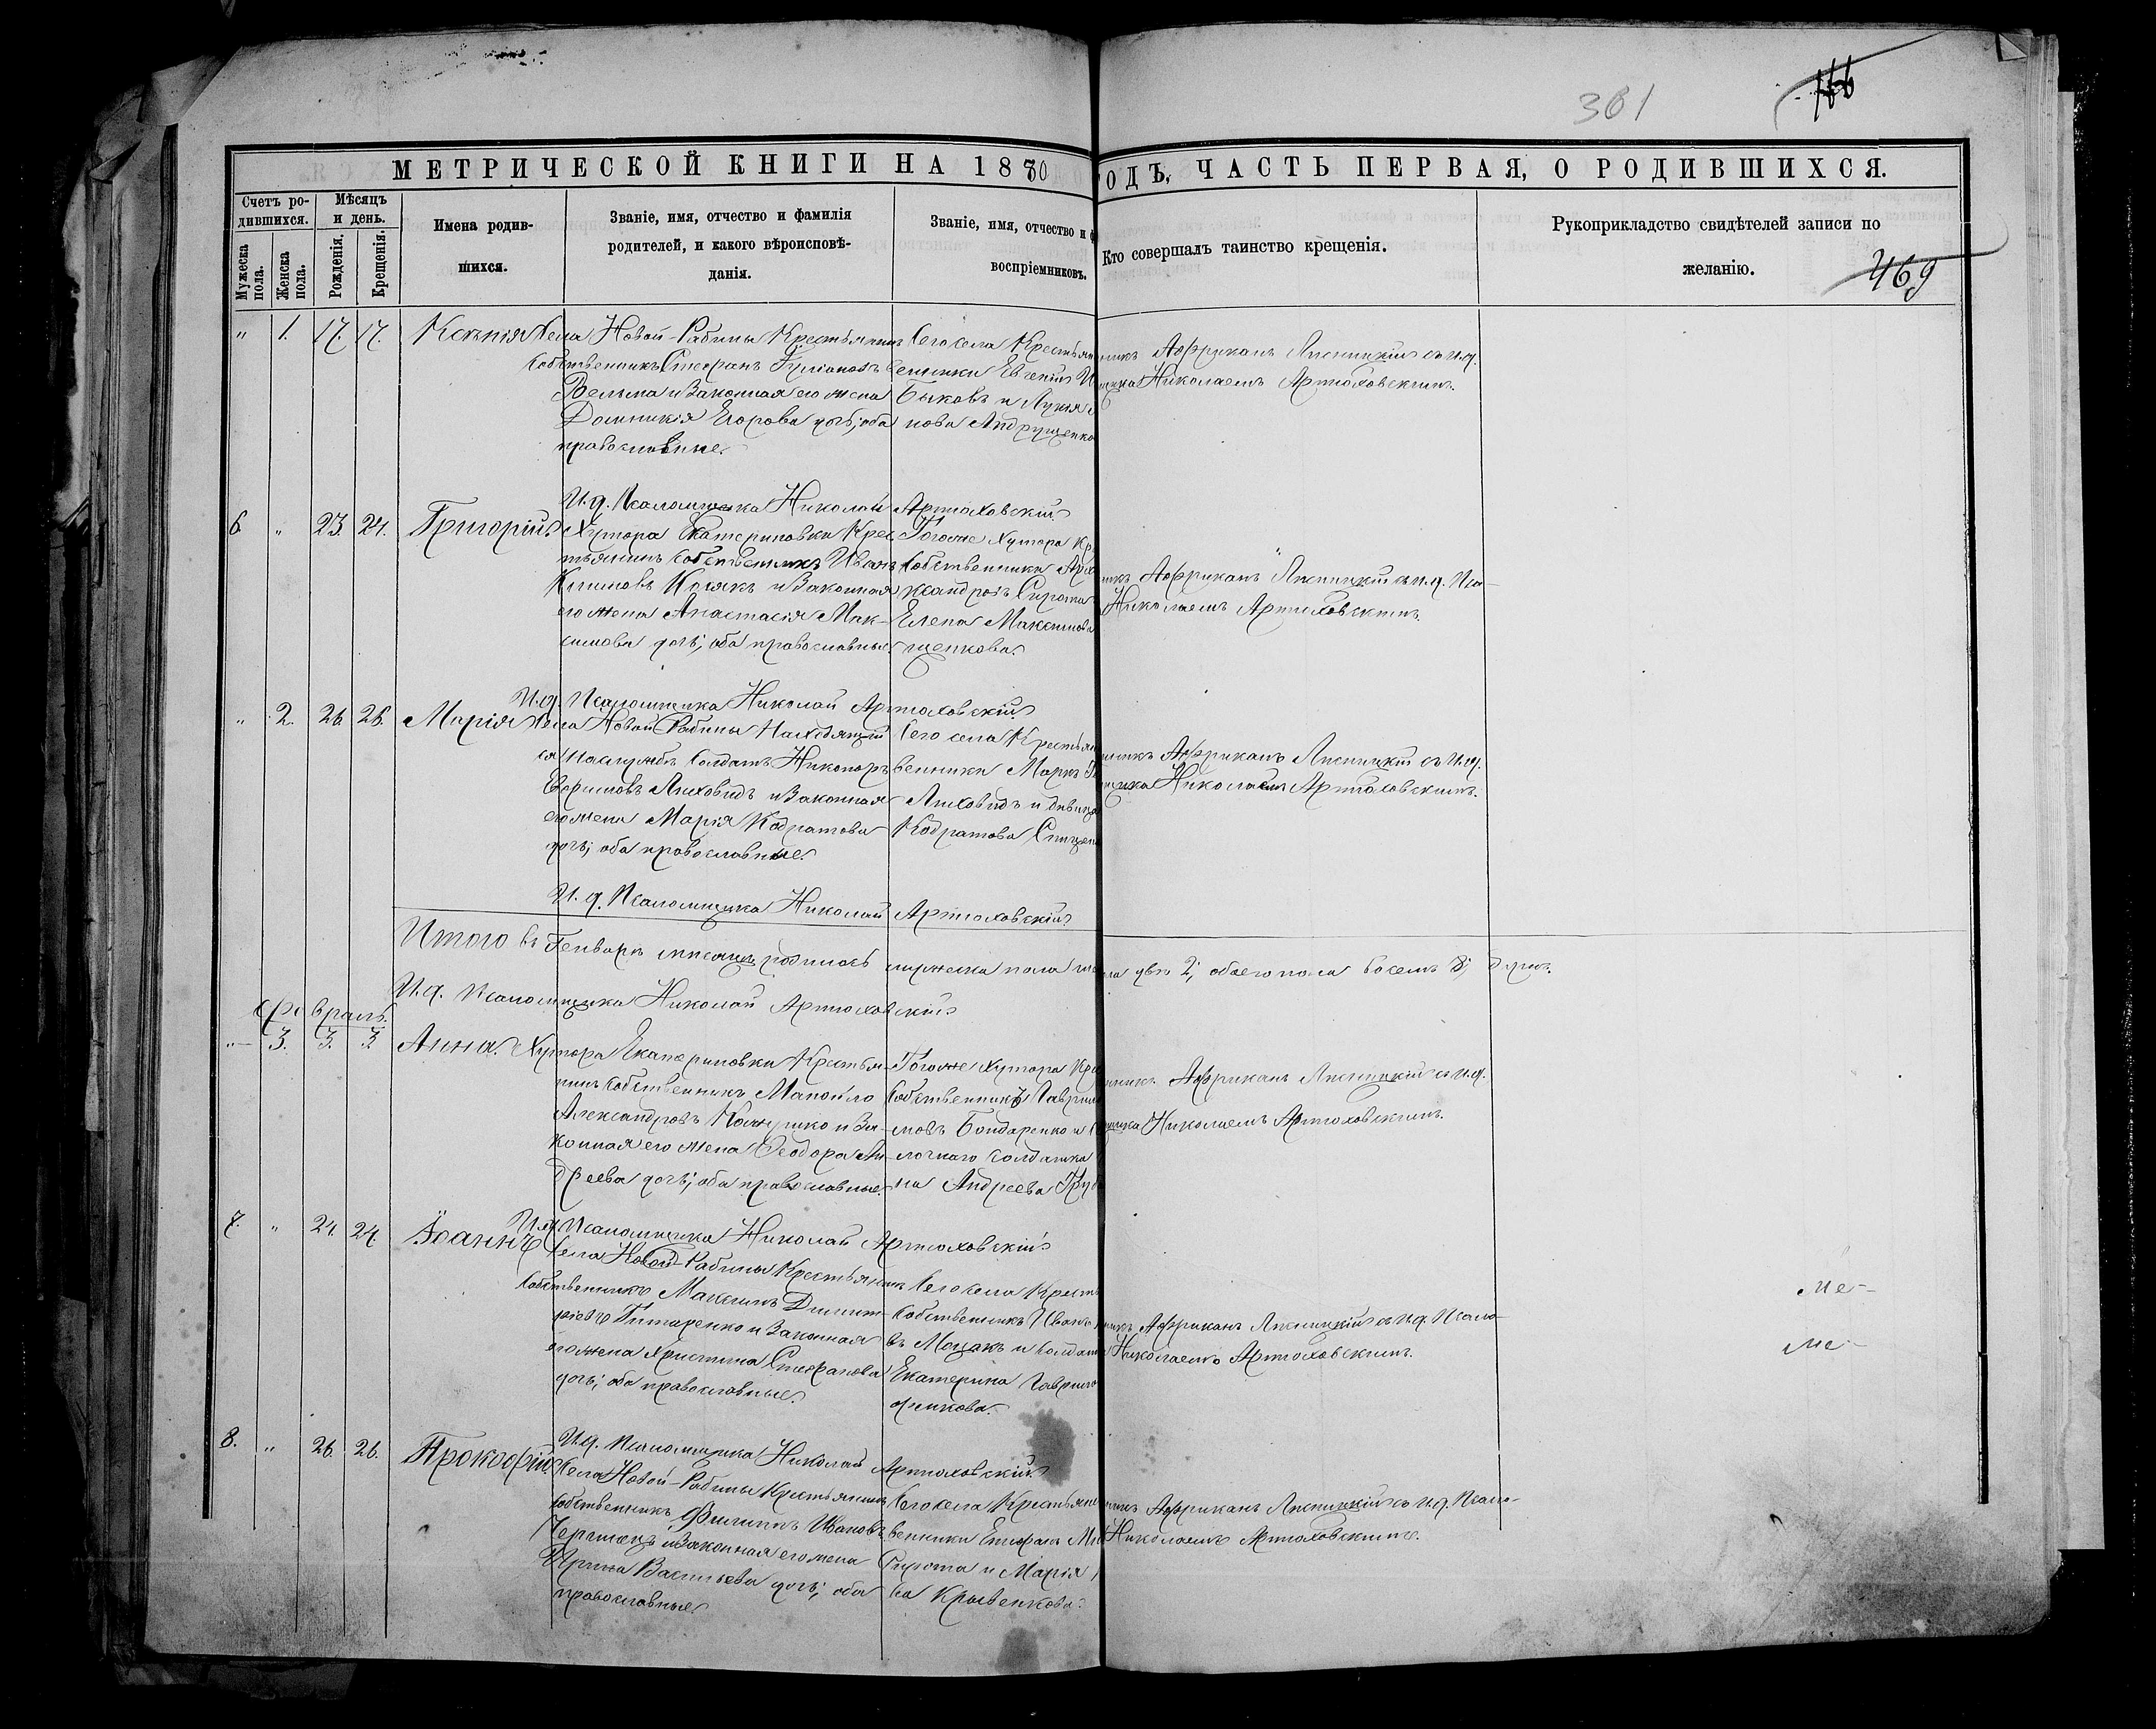 361
166
МЕТРИЧЕСКОЙ КНИГИ НА 1870 ГОДЪ, ЧАСТЬ ПЕРВАЯ, О РОДИВШИХСЯ.
Счетъ ро-
дившихся.
Мѣсяцъ
и день.
Мужеска
пола.
Женска
пола.
Рожденія.
Крещенія.
Имена родив-
шихся.
Званіе, имя, отчество и фамилія
родителей, и какого вѣроисповѣ-
данія.
Званіе, имя, отчество и ф
воспріемниковъ.
Кто совершалъ таинство крещенія.
Рукоприкладство свидѣтелей записи по
желанію.
469
" 1. 17. 17. Ксенія
Села Новой-Рабины Крестьянинъ
собственникъ Стефанъ
и законная его жена
Домникія Егорова дочь; оба
православные.
Сего села Крестьян
Евгеній
Быковъ и
нова Андрущенко
никъ Африканъ Лисницкій съ И. д.
щика Николаемъ Артюховскимъ.
И. д. Псаломщика Николай Артюховскій
6. " 23. 24. Григорій
Хутора Екатериновки Крес
тьянинъ собственникъ Иванъ
Климовъ и законная
его жена Анастасія Мак-
симова дочь; оба православные.
Тогоже Хутора Кр
собственники
ксандровъ Сирота
Елена Максимова
щенкова.
никъ Африканъ Лисницкій съ И. д. Пса-
Николаемъ Артюховскимъ.
И. д. Псаломщика Николай Артюховскій
" 2. 26. 26. Марія
Села Новой Рабины Находящій
ся на службѣ солдатъ Никифоръ
Ефимовъ Лиховидъ и законная
его жена Марія Кодратова
дочь; оба православные.
Сего села Крестьян
венники Маркъ
Лиховидъ и дѣвица
Кодратова
никъ Африканъ Лисницкій съ И. д.
щика Николаемъ Артюховскимъ.
И. д. Псаломщика Николай Артюховскій
Итого въ Генварѣ мѣсяцѣ родилось мужеска пола
ла две 2; обоего пола восемь 8; душъ.
И. д. Псаломщика Николай Артюховскій
Февраль.
" 3. 3. 3. Анна.
Хутора Екатериновки Крестья-
нинъ собственникъ Мануйло
Александровъ и За-
конная его жена Феодора Ан-
дреева дочь; оба православные.
Тогоже Хутора Кре
собственникъ Гаврил
мовъ Бондаренко и
солдатка
на Андреева
никъ Африканъ Лисницкій съ И. д.
щика Николаемъ Артюховскимъ.
И. д. Псаломщика Николай Артюховскій
7. " 24. 24. Іоаннъ
Села Новой-Рабины Крестьянинъ
собственникъ Максимъ Димит-
ріевъ Титаренко и Законная
его жена Христина Стефанова
дочь; оба православные.
Сего села Кресть
собственникъ Иванъ
въ Моцакъ и солдат
Екатерина Гаврило
никъ Африканъ Лисницкій съ И. д. Псало-
Николаемъ Артюховскимъ.
ме-
ме-
И. д. Псаломщика Николай Артюховскій
8. " 26. 26. Прокофій
Села Новой-Рабины Крестьянинъ
собственникъ Филиппъ Ивановъ
и Законная его жена
Ирина Васильева дочь; оба
православные.
Сего села Крестьяне
венники Епифанъ
Сирота и Марія
ва Кривенкова.
никъ Африканъ Лисницкій съ И. д. Псало-
Николаемъ Артюховскимъ.